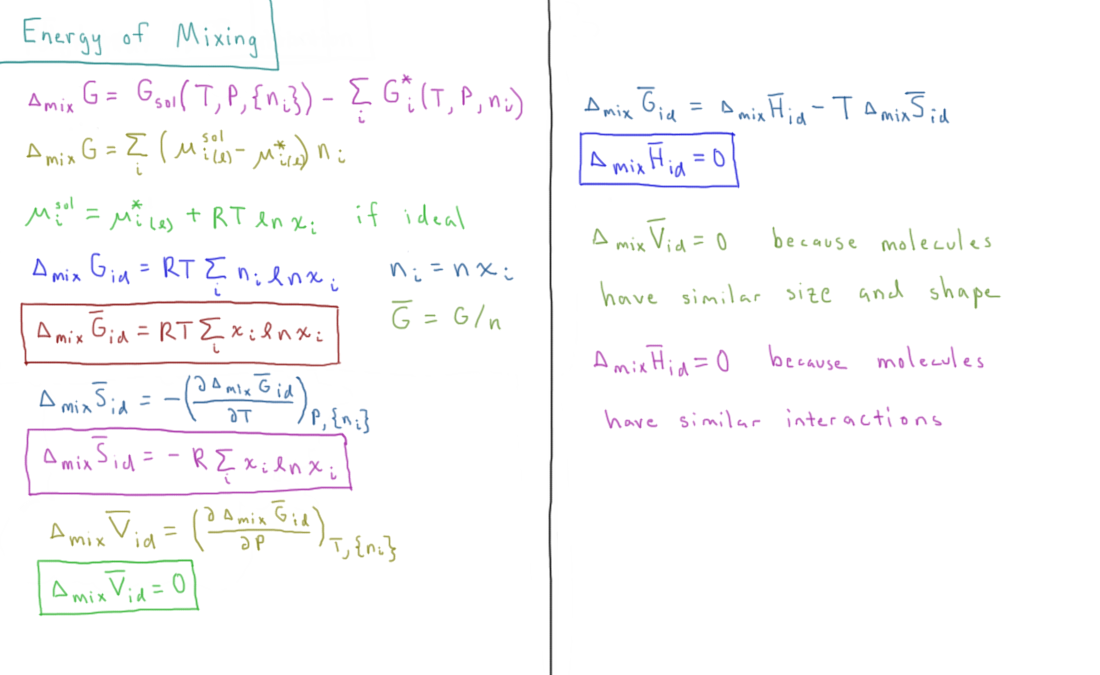 Energy of Mixing
Δ_mix G = G_sol(T,P,{n_i}) − Σ_i G_i^*(T,P,n_i)
Δ_mix G = Σ_i (μ_i(l)^sol − μ_i(l)^*) n_i
μ_i^sol = μ_i(l)^* + RT ln x_i if ideal
Δ_mix G_id = RT Σ_i n_i ln x_i n_i = n x_i
Δ_mix G̅_id = RT Σ_i x_i ln x_i G̅ = G/n
Δ_mix S̅_id = −(∂Δ_mix G̅_id / ∂T)_P,{n_i}
Δ_mix S̅_id = − R Σ_i x_i ln x_i
Δ_mix V̅_id = (∂Δ_mix G̅_id / ∂P)_T,{n_i}
Δ_mix V̅_id = 0
Δ_mix G̅_id = Δ_mix H̅_id − T Δ_mix S̅_id
Δ_mix H̅_id = 0
Δ_mix V̅_id = 0 because molecules
have similar size and shape
Δ_mix H̅_id = 0 because molecules
have similar interactions